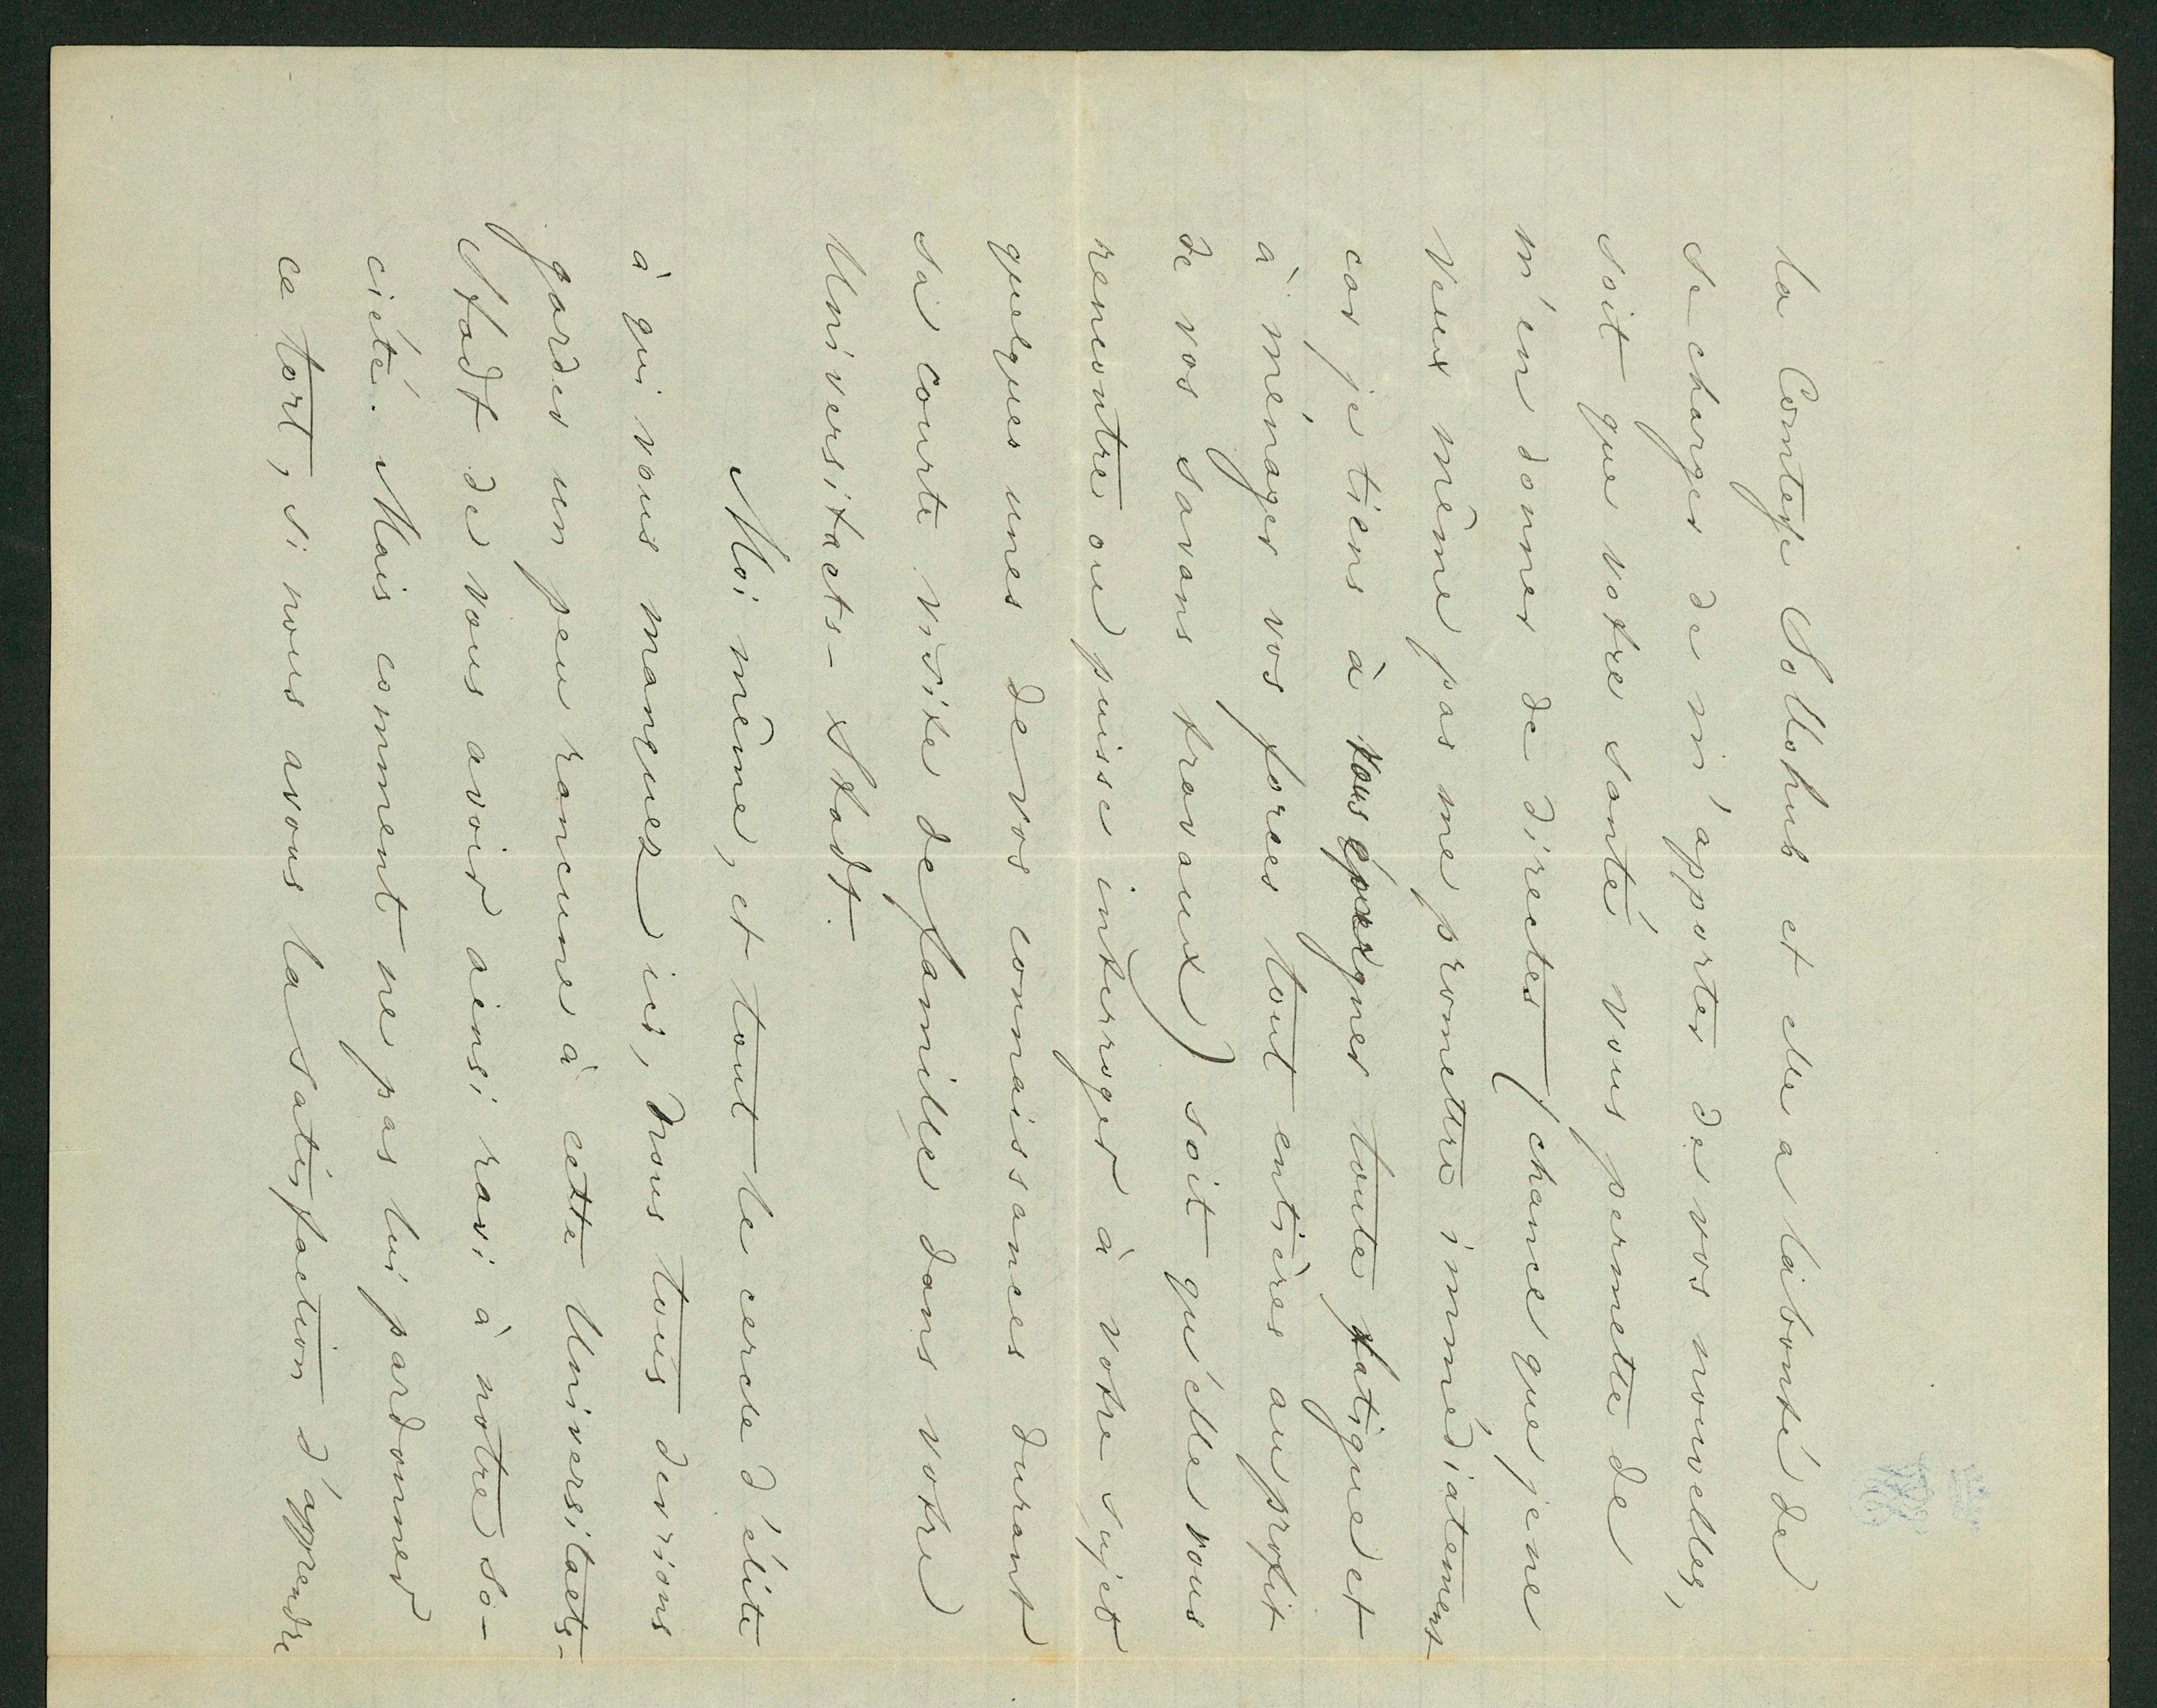 la Comtesse Sollohub et elle a la bonté de
se charger de m'apporter de vos nouvelles,
soit que votre santé vous permette de
m'en donner de directes (chance que je ne
veux même pas me promettre immédiatement
car je tiens à vous épargner toute fatigue et
à ménager vos forces tout entières au profit
de vos savans travaux) soit qu'elle vous
rencontre ou puisse interroger à votre sujet
quelques unes de vos connaissances durant
sa courte visite de famille dans votre
Universitaets-Stadt.
Moi même, et tout le cercle d'élite
à qui vous manquez ici, nous tous devrions
garder un peu rancune à cette Universitaets-
Stadt de vous avoir ainsi ravi à notre so-
ciété. Mais comment ne pas lui pardonner
ce tort, si nous avons la satisfaction d'apprendre